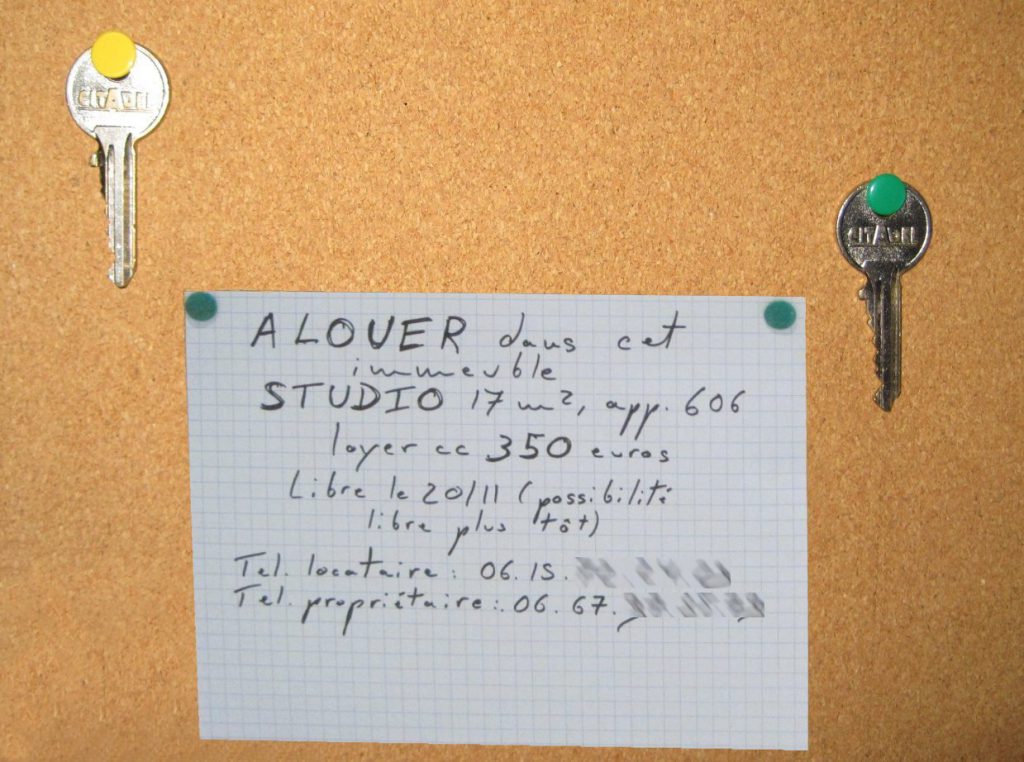 CITADEL
CITADEL
A LOUER dans cet
immeuble
STUDIO 17 m², app. 606
loyer cc 350 euros
Libre le 20/11 (possibilité
libre plus tôt)
Tel. locataire : 06.15.
Tel. propriétaire : 06.67.